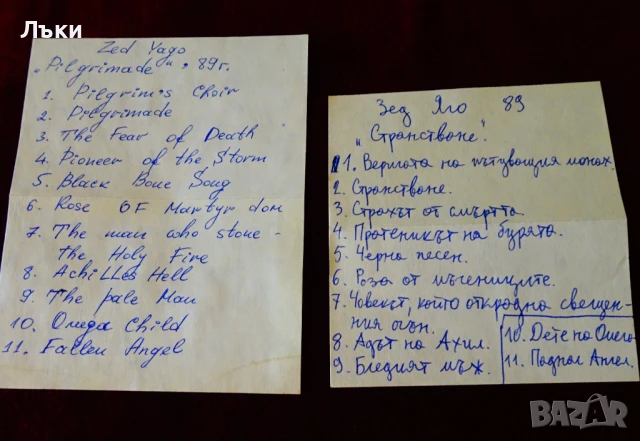 Лъки
Zed Yago
„Pilgrimade", 89г.
1. Pilgrim's Choir
2. Pilgrimade
3. The Fear of Death
4. Pioneer of the Storm
5. Black Bone Song
6. Rose OF Martyr dom
7. The man who stone -
the Holy Fire
8. Achilles Hell
9. The pale Man
10. Omega Child
11. Fallen Angel
Зед Яго 89
„Странстване".
1. Вергата на пътуващия монах.
2. Странстване.
3. Страхът от смъртта.
4. Протеникът на бурята.
5. Черна песен.
6. Роза от мъчениците.
7. Човекът, който открадна свещен-
ния огън.
8. Адът на Ахил.
9. Бледият мъж.
10. Дете на Омега
11. Паднал Ангел.
BAZAR